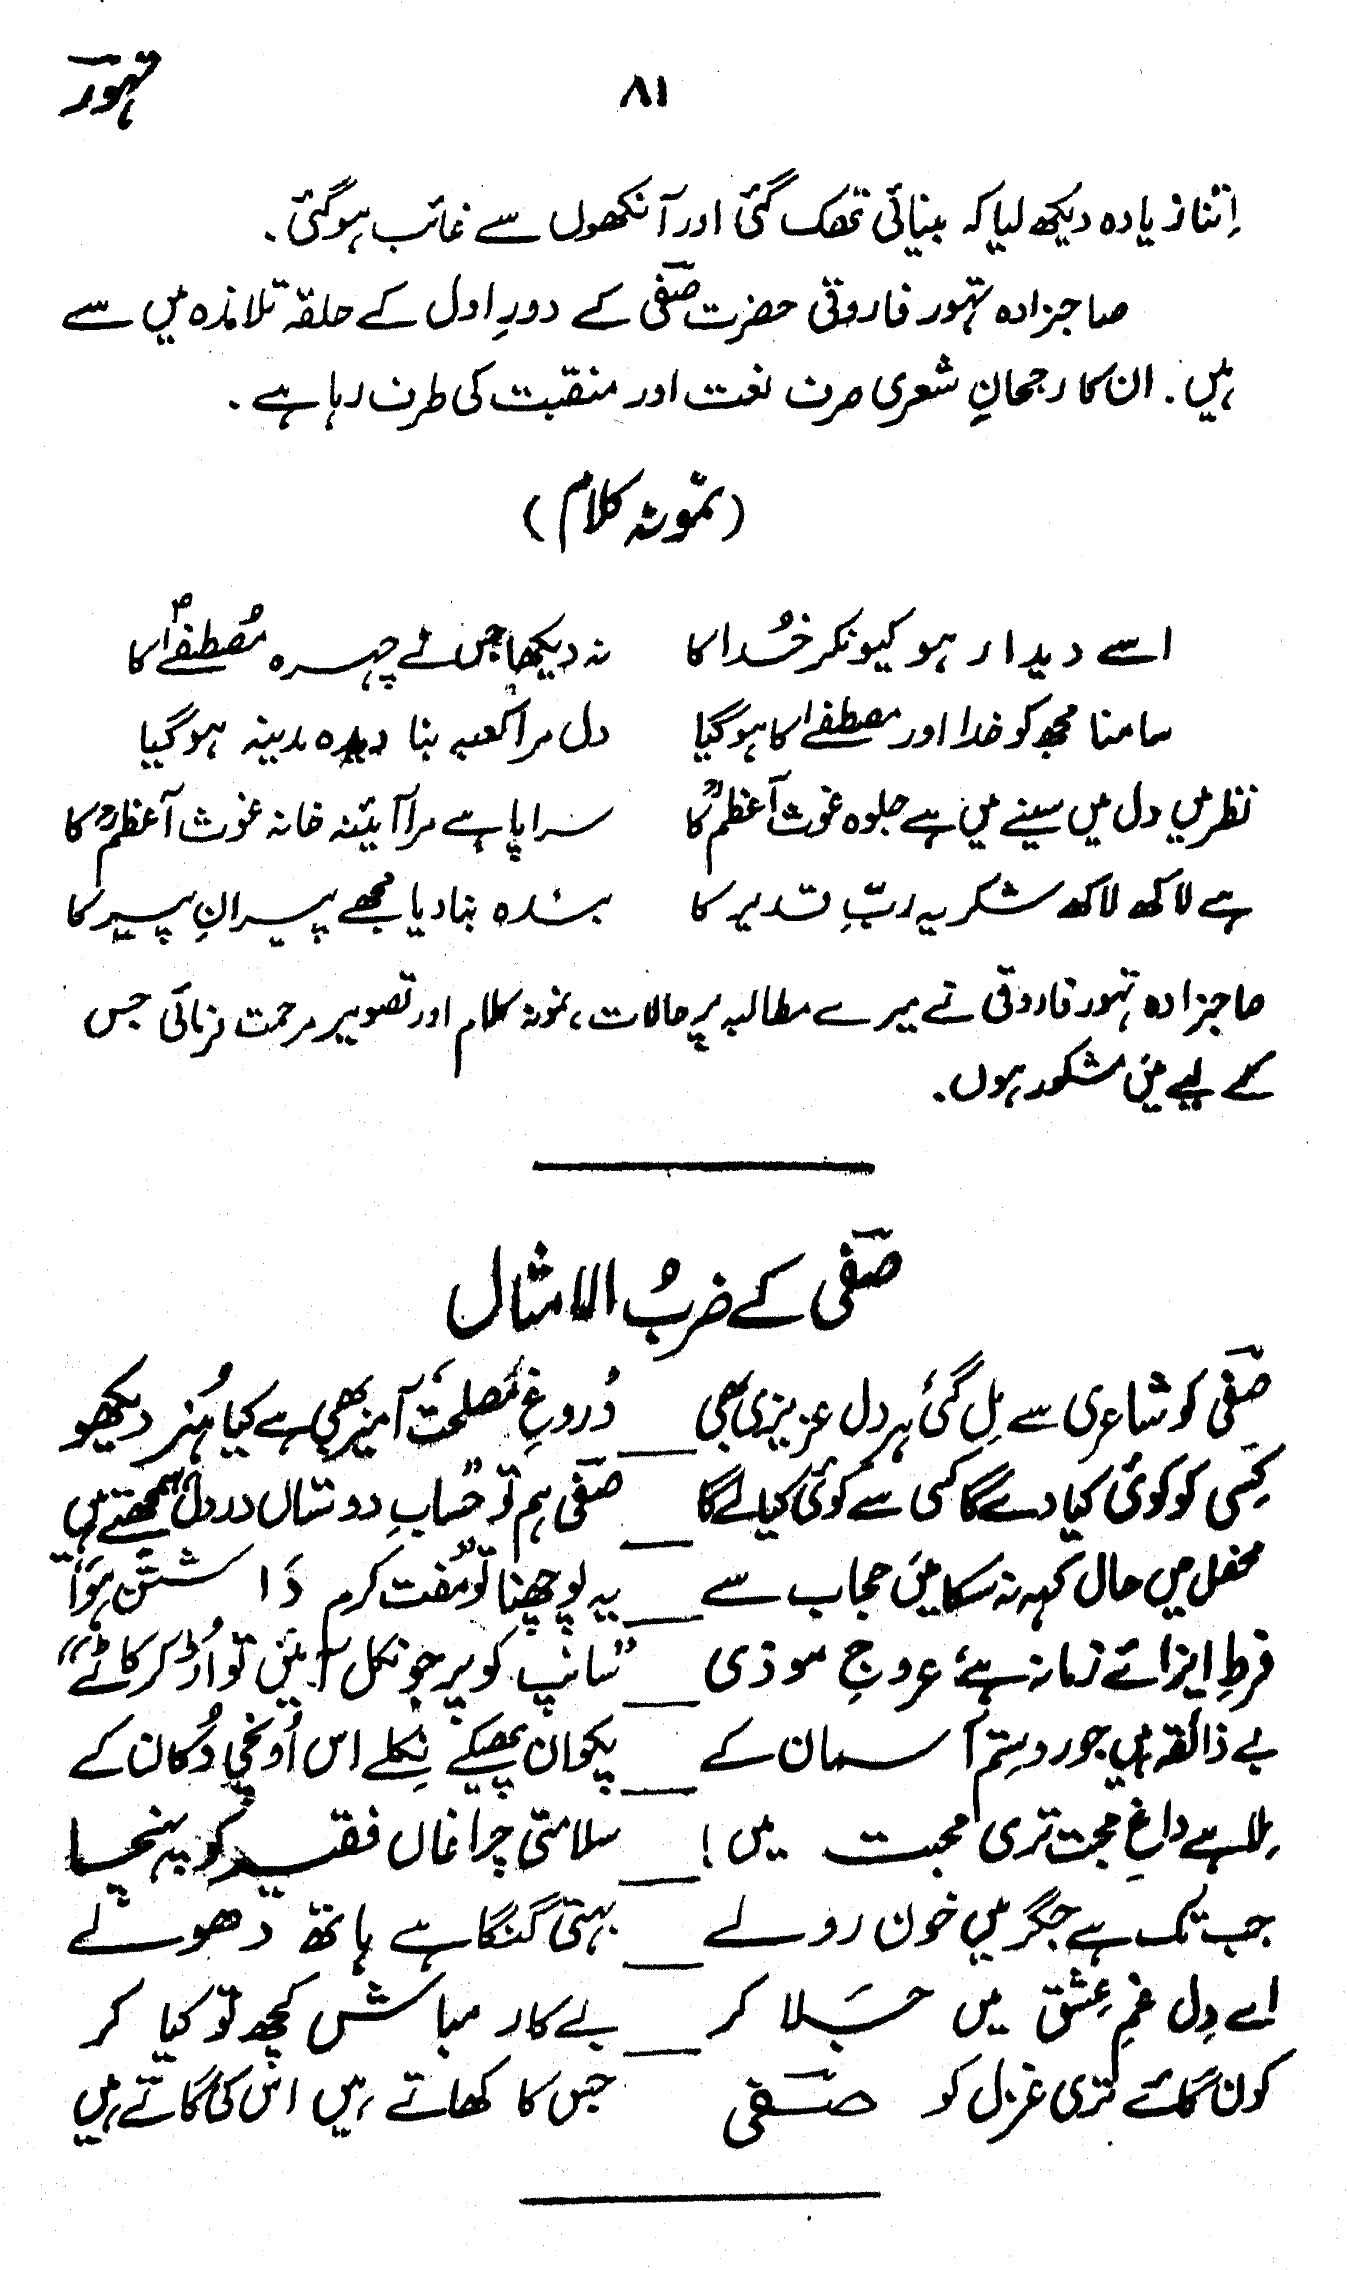 ۸۱
تہور
اِتنا زیادہ دیکھ لیا کہ بینائی تھک گئی اور آنکھوں سے غائب ہوگئی۔
صاحبزادہ تہور فاروقی حضرت صفی کے دورِ اول کے حلقۂ تلامذہ میں سے
ہیں۔ ان کا رجحانِ شعری صرف نعت اور منقبت کی طرف رہا ہے۔
(نمونہ کلام)
اسے دیدار ہو کیونکر خُدا کا نہ دیکھا جس نے چہرہ مُصطفےٰؐ کا
سامنا مجھ کو خدا اور مصطفےٰ کا ہوگیا دل مرا کعبہ بنا دیدہ مدینہ ہوگیا
نظر میں دل میں سینے میں ہے جلوہ غوث اعظمؒ کا سراپا ہے مرا آئینہ خانہ غوث اعظمؒ کا
ہے لاکھ لاکھ شکر یہ ربِّ قدیر کا بندہ بنا دیا مجھے پیرانِ پیر کا
صاحبزادہ تہور فاروقی نے میرے مطالبہ پر حالات، نمونہ کلام اور تصویر مرحمت فرمائی جس
کے لیے میں مشکور ہوں۔
صفی کے ضربُ الامثال
صفی کو شاعری سے مِل گئی ہر دل عزیزی بھی ـــ دُروغِ مُصلحت آمیز بھی ہے کیا ہُنر دیکھو
کِسی کو کوئی کیا دے گا کسی سے کوئی کیا لے گا ـــ صفی ہم تو "حسابِ دوستاں در دل" سمجھتے ہیں
محفل میں حال کہہ نہ سکا میں حجاب سے ـــ یہ پوچھنا تو "مُفت کرم داشتن" ہوَا
فرطِ ایذائے زمانہ ہے عروجِ موذی ـــ "سانپ کو پر جو نکل آئیں تو اُڑ کر کاٹے"
بے ذائقہ ہیں جور و ستم آسمان کے ـــ پکوان پھیکے نِکلے اس اُونچی دُکان کے
مِلا ہے داغِ محبت تری محبت میں! ـــ سلامتی چراغاں فقیر کو پہنچا
جب تک ہے جگر میں خون رولے ـــ بہتی گنگا ہے ہاتھ دھولے
اے دِل غمِ عِشق میں جَلا کر ـــ بے کار مباش کچھ تو کیا کر
کون گائے تری غزل کو صفی جس کا کھاتے ہیں اس کی گاتے ہیں